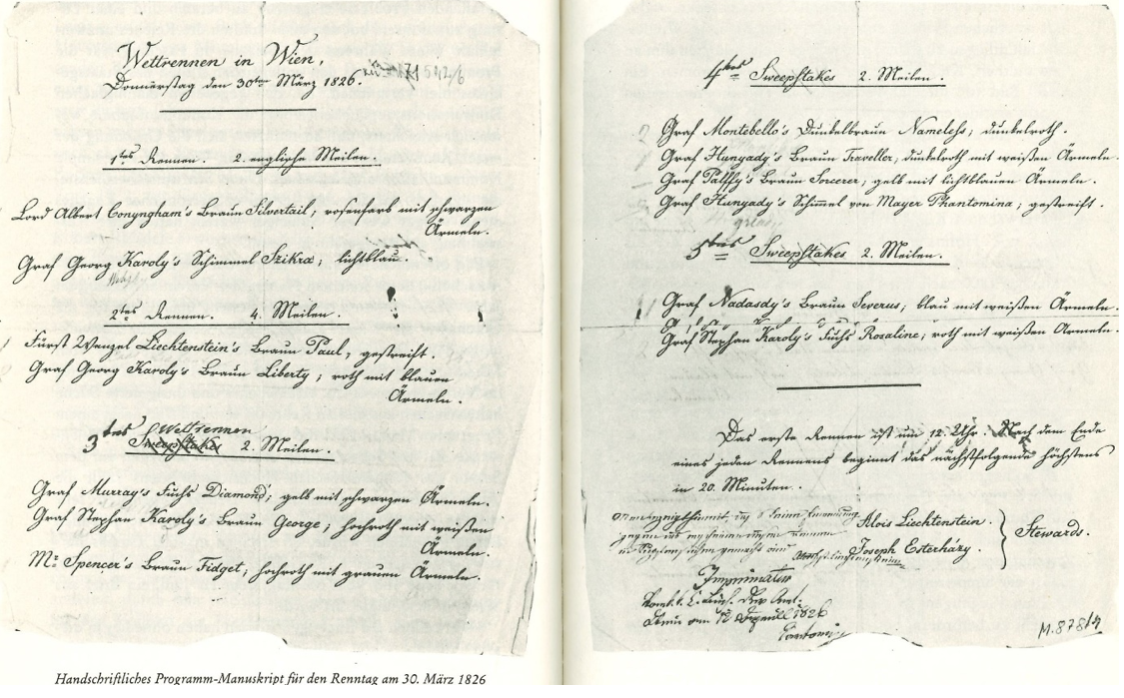 Wettrennen in Wien,
Donnerstag den 30ten März 1826.
1tes Rennen. 2. englische Meilen.
Lord Albert Conyngham's Braun Silvertail; rosenfarb mit schwarzen
Ärmeln.
Graf Georg Karoly's Schimmel Szikra; lichtblau.
2tes Rennen. 4. Meilen.
Fürst Wenzel Liechtenstein's Braun Paul, gestreift.
Graf Georg Karoly's Braun Liberty; roth mit blauen
Ärmeln.
Wettrennen
3tes Sweepstakes 2. Meilen.
Graf Murray's Fuchs Diamond; gelb mit schwarzen Ärmeln.
Graf Stephan Karoly's Braun George; hochroth mit weißen
Ärmeln.
Mr. Spencer's Braun Fidget; hochroth mit grauen Ärmeln.
Handschriftliches Programm-Manuskript für den Renntag am 30. März 1826
4tes Sweepstakes 2. Meilen.
Graf Montebello's Dunkelbraun Nameless; dunkelroth.
Graf Hunyady's Braun Traveller; dunkelroth mit weißen Ärmeln.
Graf Pálffy's Braun Sorcerer; gelb mit lichtblauen Ärmeln.
Graf Hunyady's Schimmel von Mayer Phantomina; gestreift.
5tes Sweepstakes 2. Meilen.
Graf Nadasdy's Braun Severus; blau mit weißen Ärmeln.
Graf Stephan Karoly's Fuchs Rosaline; roth mit weißen Ärmeln.
Das erste Rennen ist um 12 Uhr. Nach dem Ende
eines jeden Rennens beginnt das nächstfolgende höchstens
in 20. Minuten.
Alois Liechtenstein.
Joseph Esterházy.
Stewards.
Imprimatur
1826
M.878/4